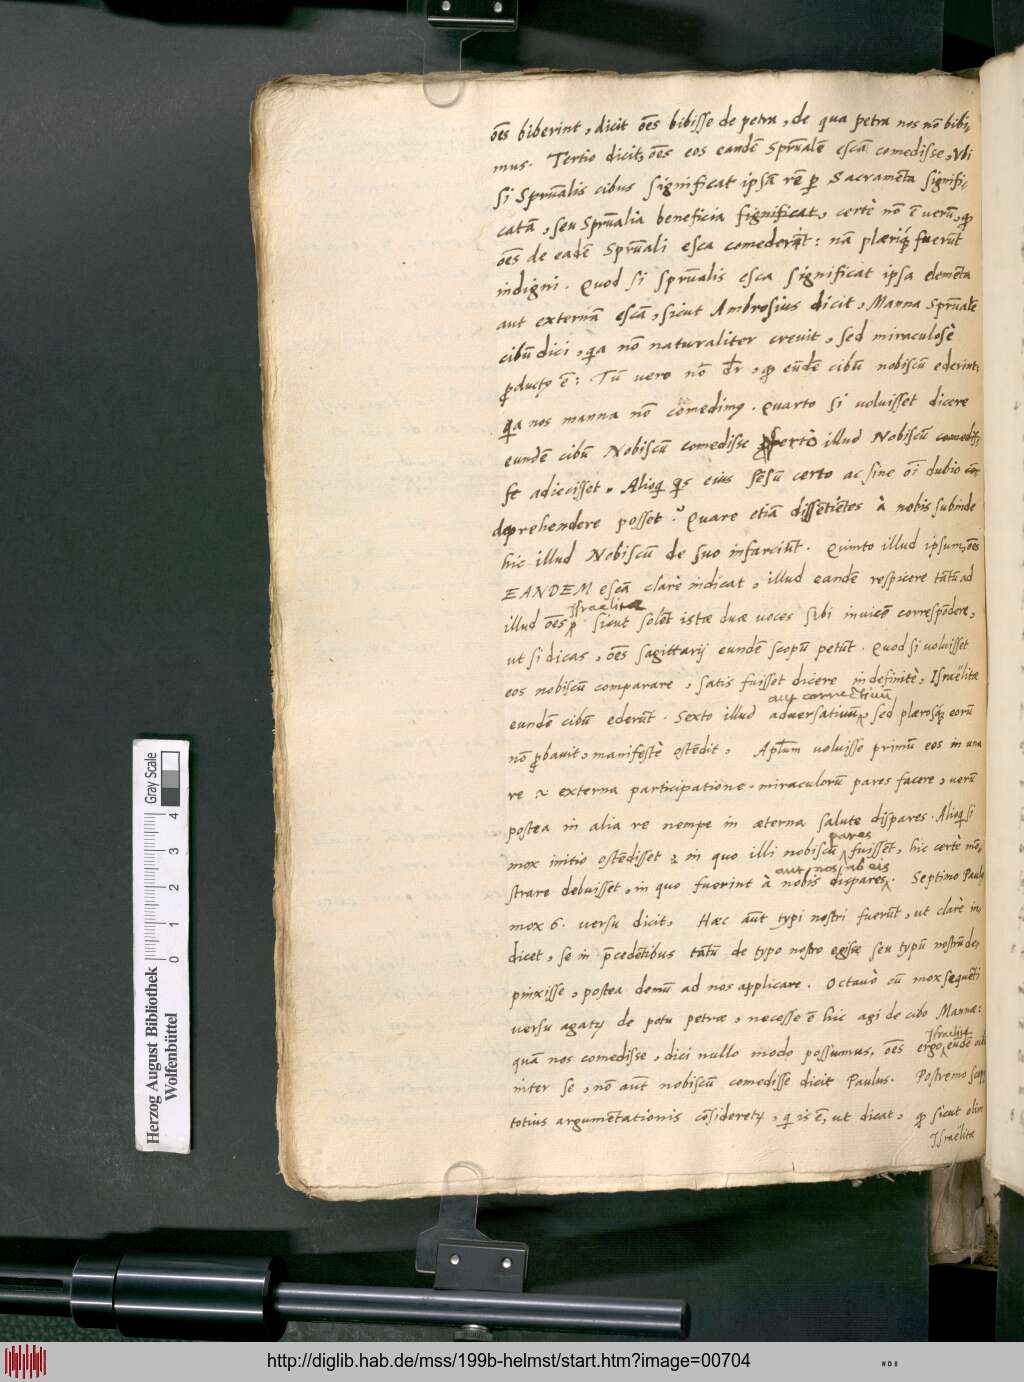 oēs biberint, dicit oēs bibisse de petra, de qua petra nos nō bibi-
mus. Tertio dicit, oēs eos eandē Sprualē escā comedisse. Vbi
si Sprualis cibus significat ipsā rē p Sacramēta signifi-
catā, seu Sprualia beneficia significat, certè nō ē uerū, qp
oēs de eadē Spruali esca comederūt: nā plæriq fuerūt
indigni. Quod si sprualis esca significat ipsa elemēta
aut externā escā, sicut Ambrosius dicit, Manna Sprualē
cibū dici, qa nō naturaliter creuit, sed miraculosè
pducty ē: Tū uero nō dr, qp eūdē cibū nobiscū ederint,
qa nos manna nō comedimy. Quarto si uoluisset dicere
eundē cibū Nobiscū comedisse certò illud Nobiscū comedis-
se adiecisset. Alioqi qs eius sēsū certo ac sine oī dubio
deprehendere posset? Quare etiā dissētiētes à nobis subinde
hic illud Nobiscū de suo infarciūt. Quinto illud ipsum, oēs
EANDEM escā clarè indicat, illud eandē respicere tātū ad
Israelitæ
illud oēs, sicut solēt istæ duæ uoces sibi inuicē correspōdere,
ut si dicas, oēs sagittarij eundē scopū petūt. Quod si uoluisset
eos nobiscū comparare, satis fuisset dicere indefinitè, Israëlitæ
aut correctiuū
eundē cibū ederūt. Sexto illud aduersatiuū, sed plærosq eorū
nō pbauit, manifestè ostēdit, Aplum uoluisse primū eos in una
re & externa participatione miraculorū pares facere, uerū
postea in alia re nempe in æterna salute dispares. Alioqi si
pares
mox initio ostēdisset in quo illi nobiscū fuissēt, hic certè mō-
aut nos ab eis
strare debuisset, in quo fuerint à nobis dispares. Septimo Paulus
mox 6. uersu dicit, Hæc aūt typi nostri fuerūt, ut clarè in-
dicet, se in pcedētibus tātū de typo nostro egisse seu typū nostrū de-
pinxisse, postea demū ad nos applicare. Octauò cū mox sequēti
uersu agaty de potu petræ, necesse ē hic agi de cibo Mannæ:
Israelitæ
quā nos comedisse, dici nullo modo possumus, oēs ergo eundē cibū
inter se, nō aūt nobiscū comedisse dicit Paulus. Postremo scop
totius argumētationis cōsiderety, q is ē, ut dicat, qp sicut olim
Israëlitæ
Herzog August Bibliothek
Wolfenbüttel
0 1 2 3 4
Gray Scale
http://diglib.hab.de/mss/199b-helmst/start.htm?image=00704